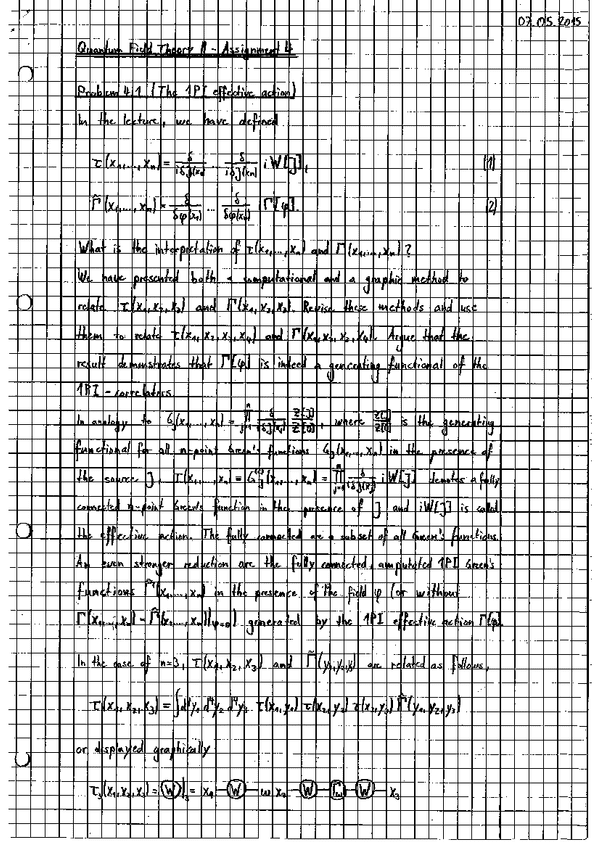 07.05.2015
Quantum Field Theory II - Assignment 4
Problem 4.1 (The 1PI effective action)
In the lecture, we have defined
τ(x₁,...,xₙ) = δ/iδJ(x₁) ... δ/iδJ(xₙ) iW[J], (1)
Γ̃(x₁,...,xₙ) = δ/δφ(x₁) ... δ/δφ(xₙ) iΓ[φ]. (2)
What is the interpretation of τ(x₁,...,xₙ) and Γ(x₁,...,xₙ)?
We have presented both a computational and a graphic method to
relate τ(x₁,x₂,x₃) and Γ(x₁,x₂,x₃). Revise these methods and use
them to relate τ(x₁,x₂,x₃,x₄) and Γ(x₁,x₂,x₃,x₄). Argue that the
result demonstrates that Γ[φ] is indeed a generating functional of the
1PI - correlators.
In analogy to G_J(x₁,...,xₙ) = ∏ δ/iδJ(xⱼ) Z[J]/Z[0], where Z[J]/Z[0] is the generating
functional for all n-point Green's functions G_J(x₁,...,xₙ) in the presence of
the source J, τ(x₁,...,xₙ) = (x₁,...,xₙ) = ∏ δ/iδJ(xⱼ) iW[J] denotes a fully
connected n-point Green's function in the presence of J and iW[J] is called
the effective action. The fully connected are a subset of all Green's functions.
An even stronger reduction are the fully connected, amputated 1PI Green's
functions Γ̃(x₁,...,xₙ) in the presence of the field φ (or without
Γ(x₁,...,xₙ) = Γ̃(x₁,...,xₙ)|φ=0) generated by the 1PI effective action Γ[φ].
In the case of n=3, τ(x₁,x₂,x₃) and Γ̃(y₁,y₂,y₃) are related as follows,
τ(x₁,x₂,x₃) = ∫d⁴y₁ d⁴y₂ d⁴y₃ τ(x₁,y₁) τ(x₂,y₂) τ(x₃,y₃) Γ̃(y₁,y₂,y₃)
or displayed graphically
τ(x₁,x₂,x₃) = W = x₁ W x₂ W W x₃